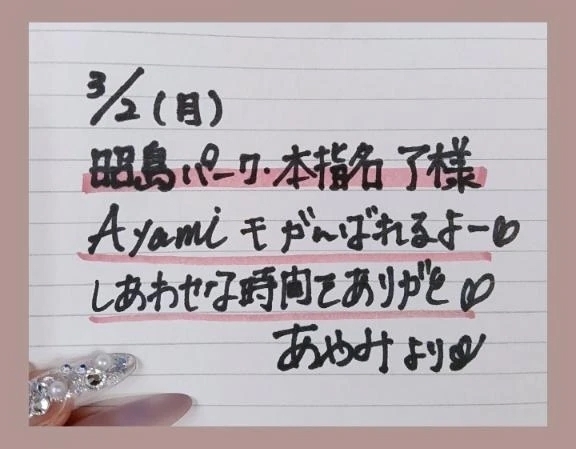 3/2(月)
昭島パーク・本指名 了様
Ayami モ がんばれるよー♡
しあわせな時間をありがと♡
あやみ より♡